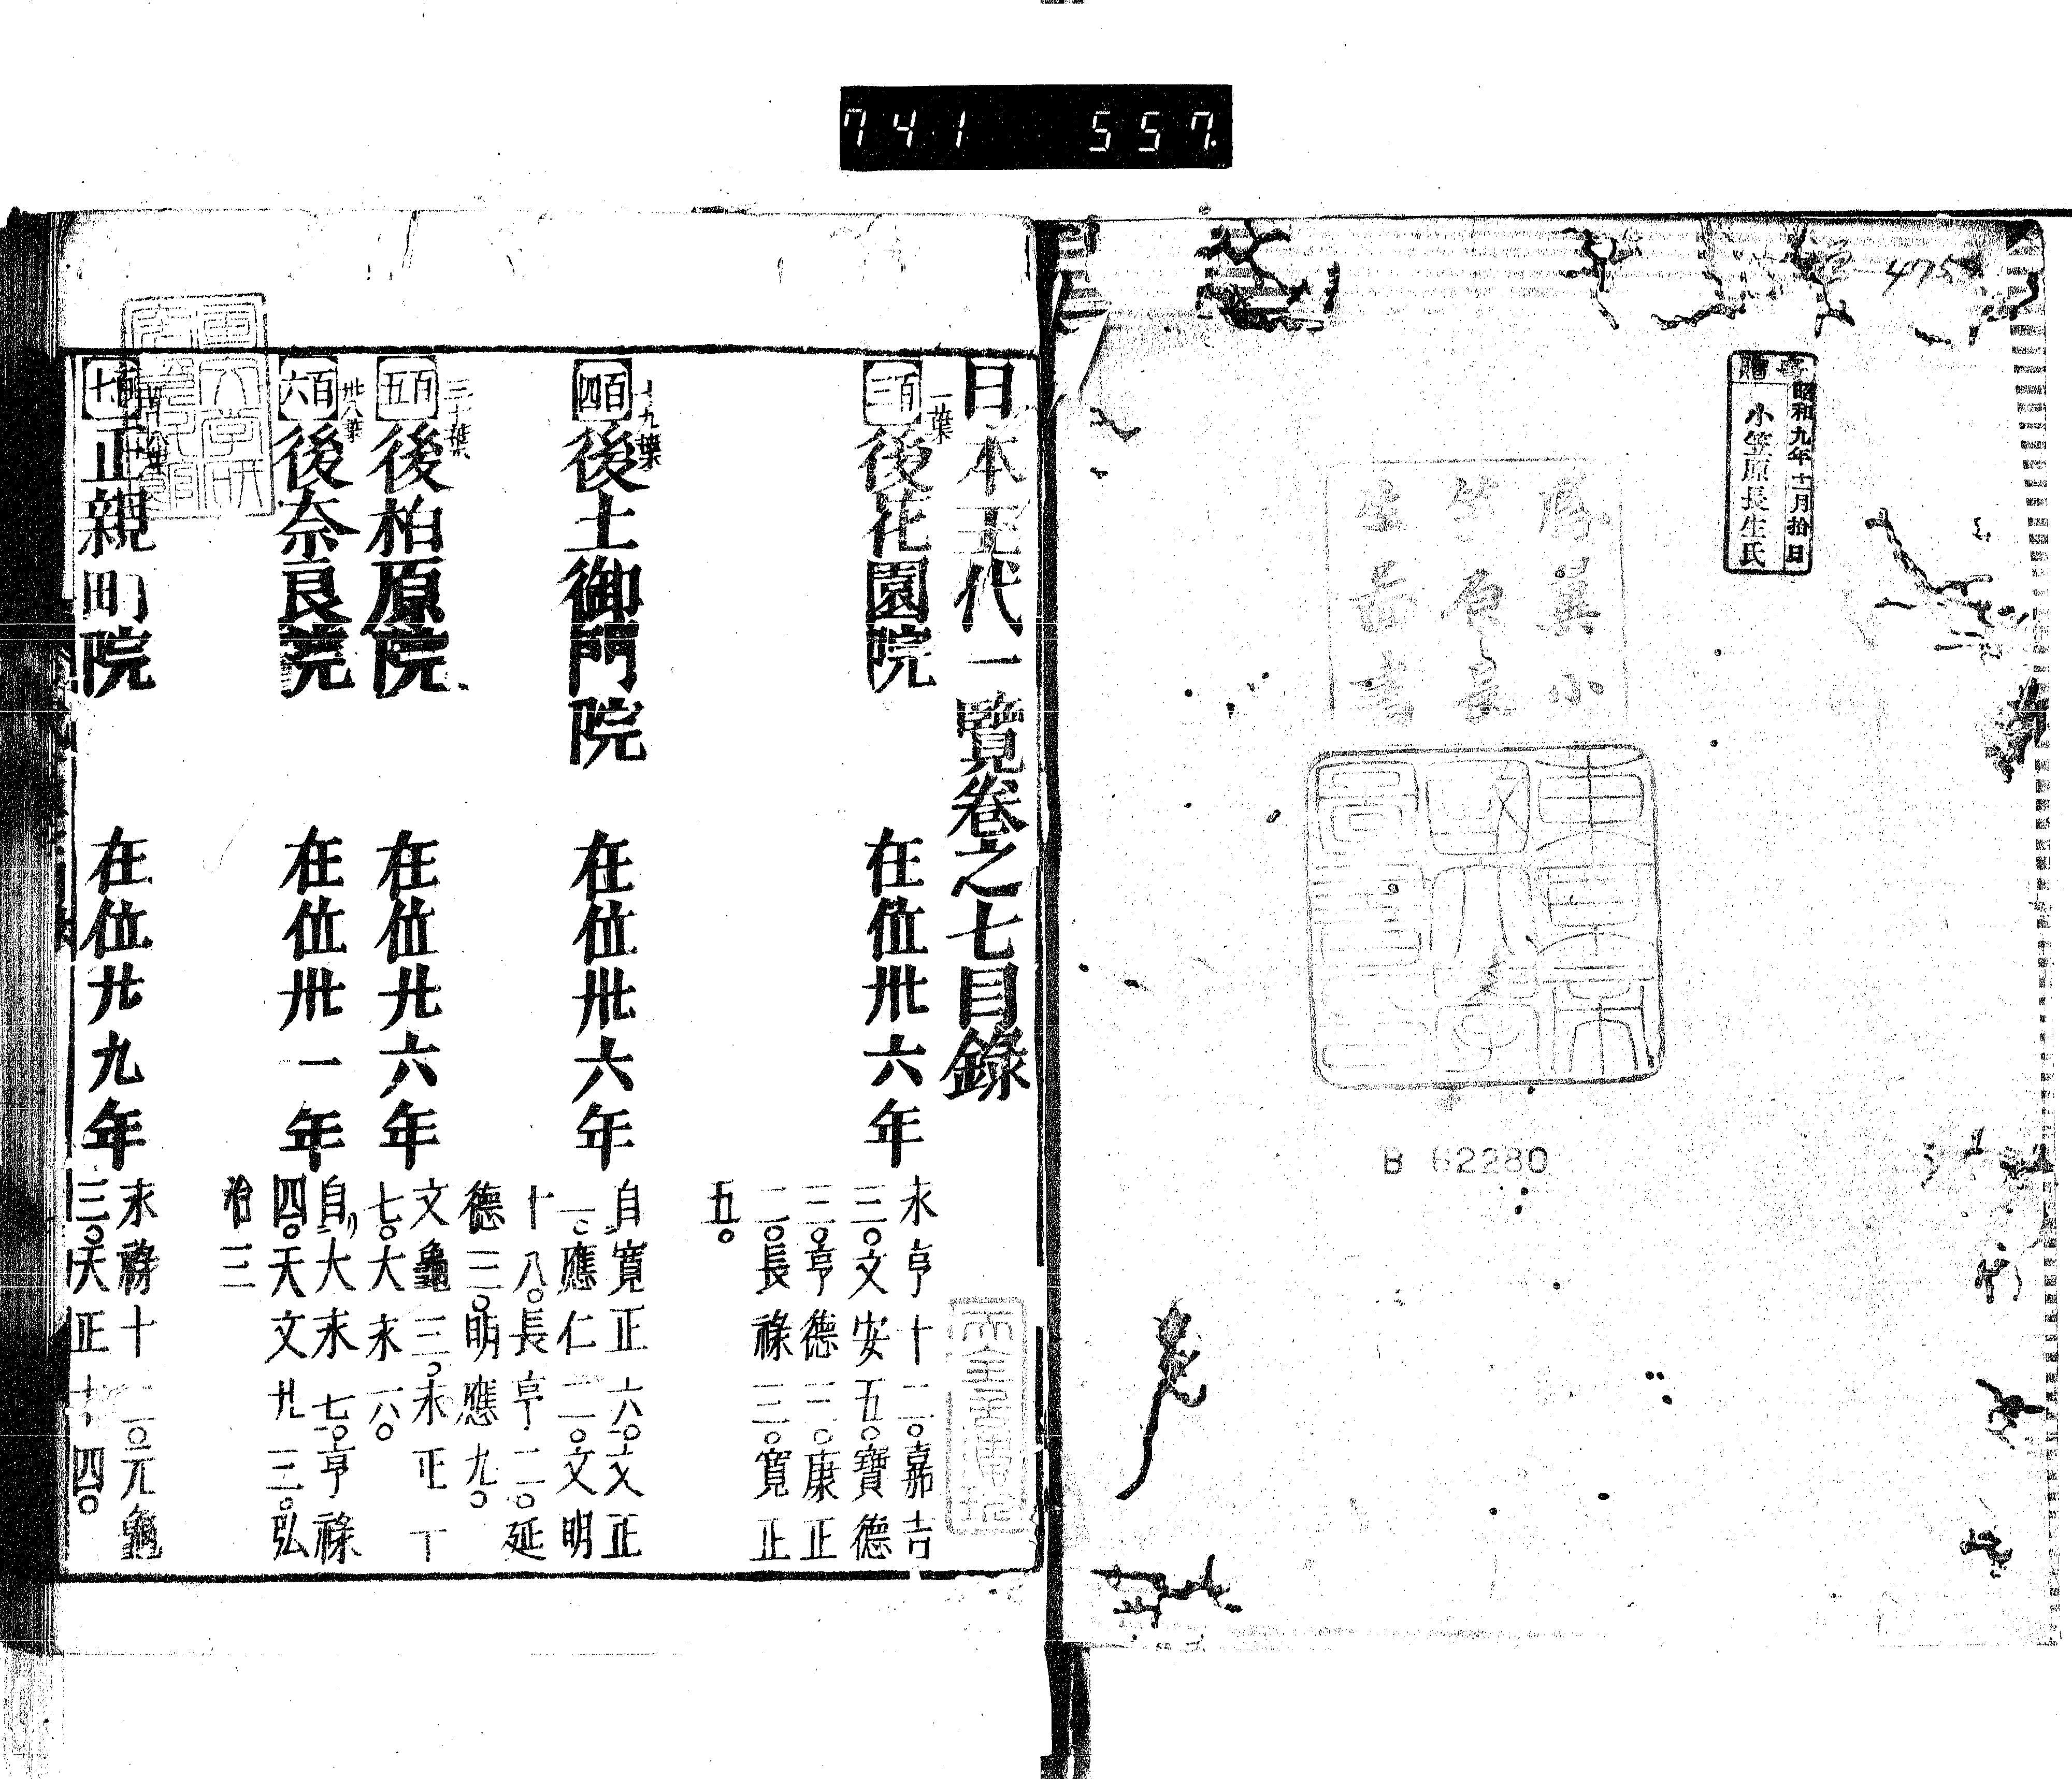 741 557.
475
寄贈
昭和九年十一月拾日
小笠原長生氏
勝翼小
笠原長
生蔵書
東京帝
國大學
圖書印
B 62280
日本王代一覽卷之七目錄
一葉
百三
後花園院 在位卅六年
永亨十二○嘉吉
三○文安五○寶德
三○亨德三○康正
二○長祿三○寬正
五○
十九葉
百四
後土御門院 在位卅六年
自寬正六○文正
一○應仁二○文明
十八○長亨二○延
德三○明應九○
三十葉
百五
後柏原院 在位廿六年
文龜三○永正十
七○大永六○
卅八葉
百六
後奈良院 在位卅一年
自大永七○亨祿
四○天文廿三○弘
治三
正親町院 在位廿九年
永祿十二○元龜
三○天正十四○